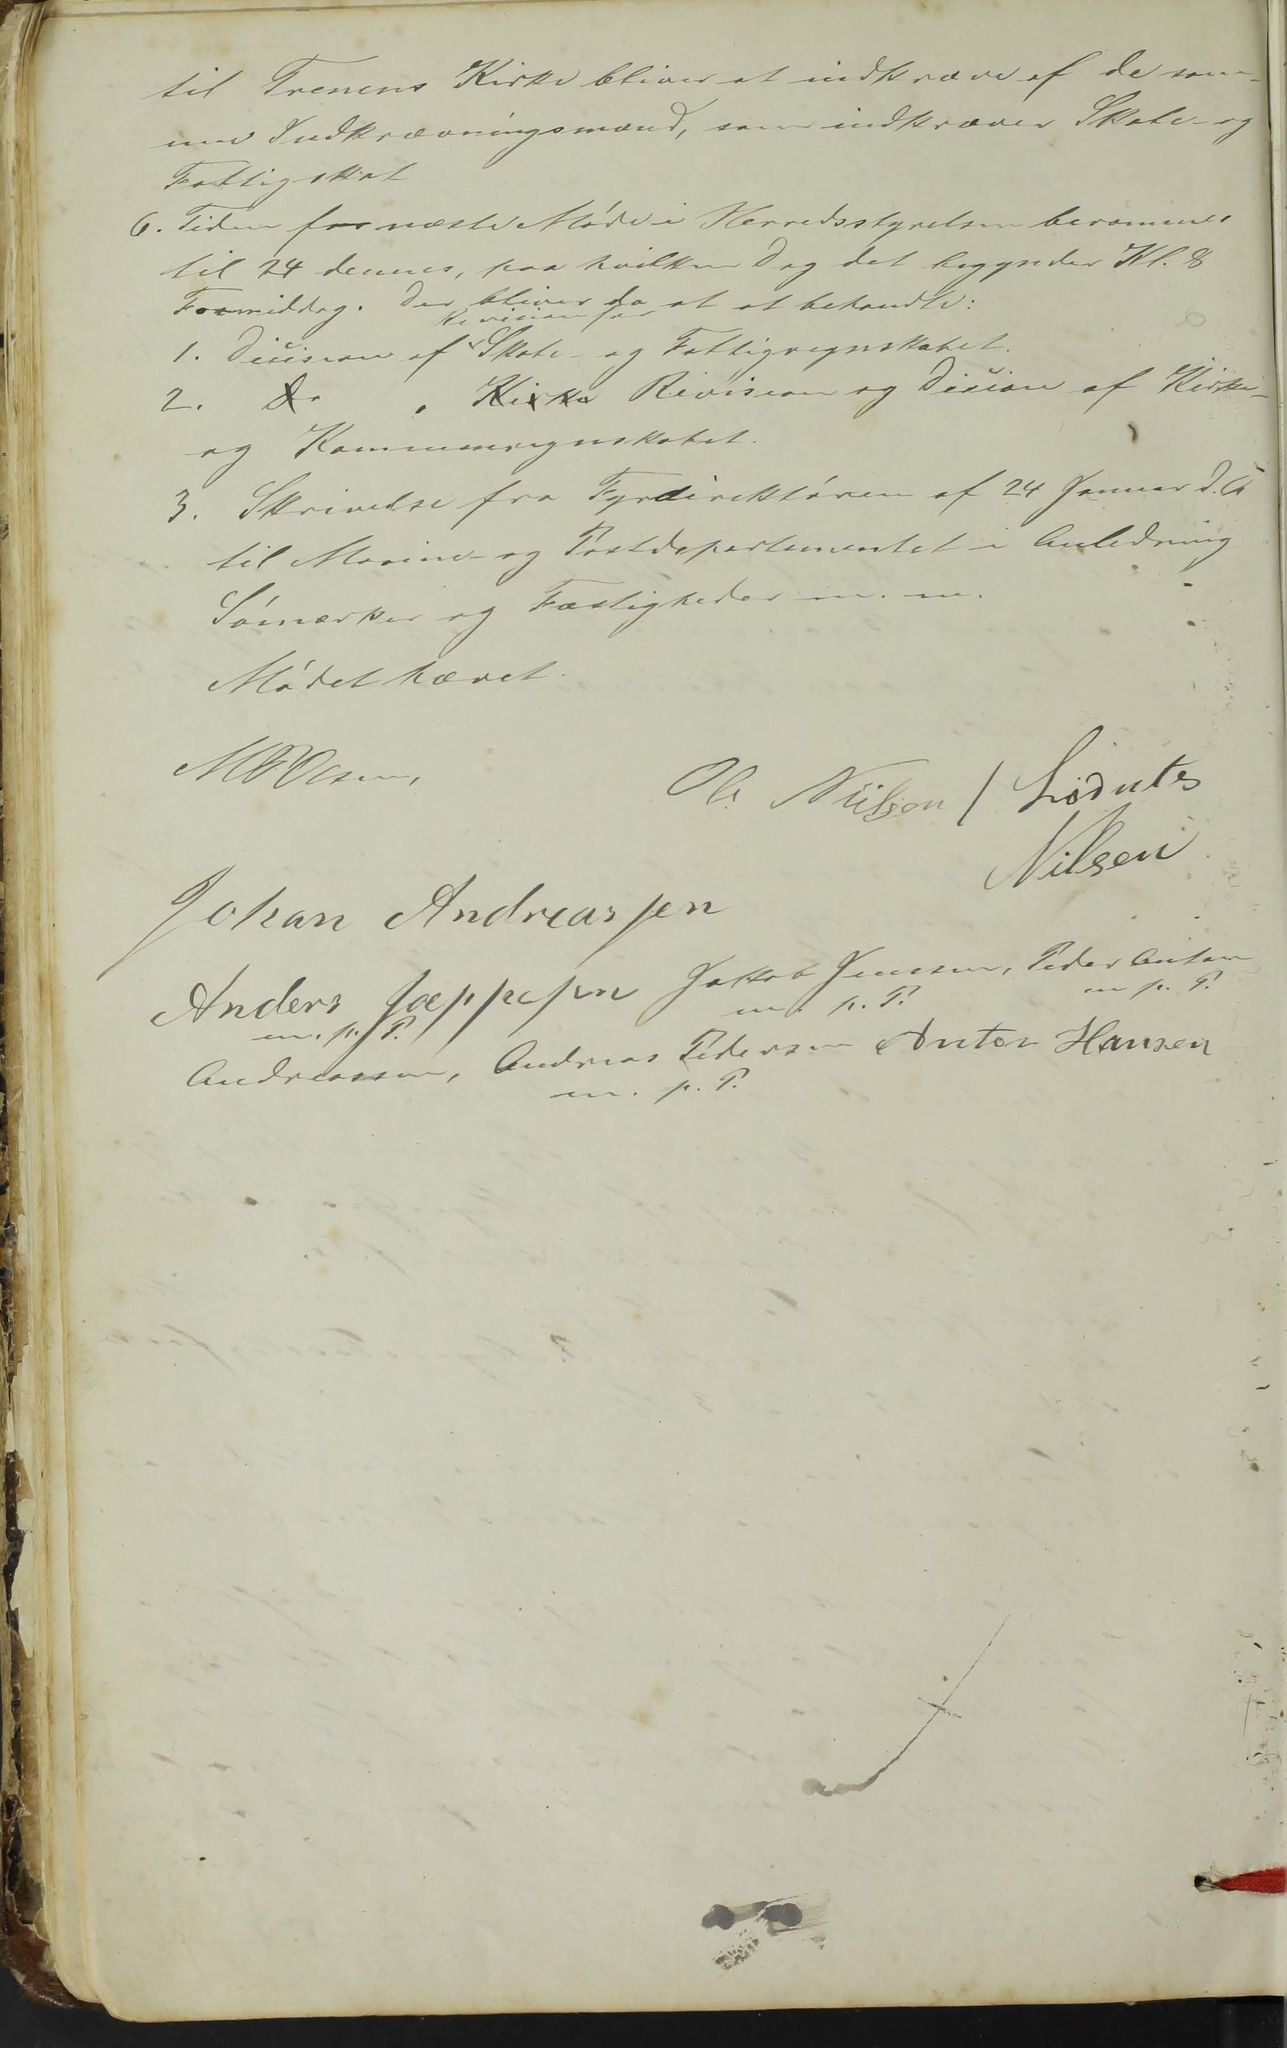 til Trenens Kirke bliver at indkræve af de sam-
me Indkrævningsmænd, som indkræver Skole- og
Fattigskat
6. Tiden for næste Møde i Herredsstyrelsen berammes
til 24 dennes, paa hvilken Dag det begynder Kl. 8
Formiddag. Der bliver da at at behandle:
Revision for
1. Decision af Skole- og Fattigregnskabet.
2. Do " Kirke Revision og Decision af Kirke-
og Kommuneregnskabet.
3. Skrivelse fra Fyrdirektøren af 24 Januar d. A
til Marine- og Postdepartementet i Anledning
Sømærker og Fæstigheder m. m.
Mødet hævet.
Olsen,
Ol. Nilsen /
Nilsen
Johan Andreassen
Anders Jæppesen Jakob Jenssen, Peder Anton
m. p. P. m. p. P. m. p. P.
Andreassen, Andreas Pedersen Anton Hansen
m. p. P.